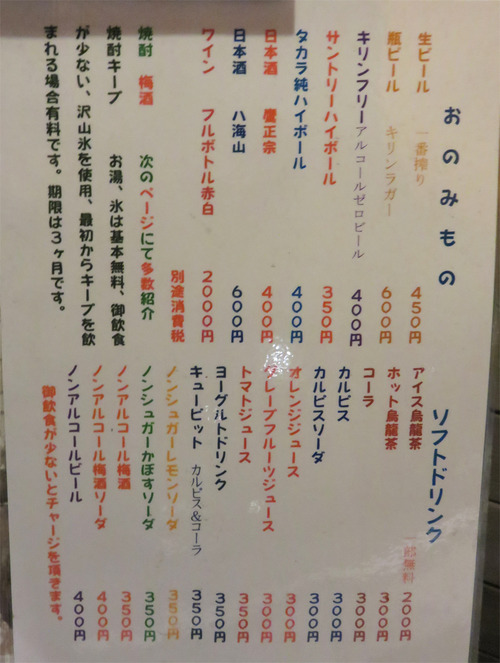 おのみもの
生ビール 一番搾り 450円
瓶ビール キリンラガー 600円
キリンフリーアルコールゼロビール 400円
サントリーハイボール 350円
タカラ純ハイボール 400円
日本酒 鷹正宗 400円
日本酒 八海山 600円
ワイン フルボトル赤白 2000円
別途消費税
焼酎 梅酒 次のページにて多数紹介
焼酎キープ お湯、氷は基本無料、御飲食
が少ない、沢山氷を使用、最初からキープを飲
まれる場合有料です。期限は3ヶ月です。
ソフトドリンク
アイス烏龍茶 一部無料 200円
ホット烏龍茶 300円
コーラ 300円
カルピス 300円
カルピスソーダ 300円
オレンジジュース 300円
グレープフルーツジュース 300円
トマトジュース 350円
ヨーグルトドリンク 350円
キューピット カルピス&コーラ 350円
ノンシュガーレモンソーダ 350円
ノンシュガーかぼすソーダ 350円
ノンアルコール梅酒 350円
ノンアルコール梅酒ソーダ 400円
ノンアルコールビール 400円
御飲食が少ないとチャージを頂きます。